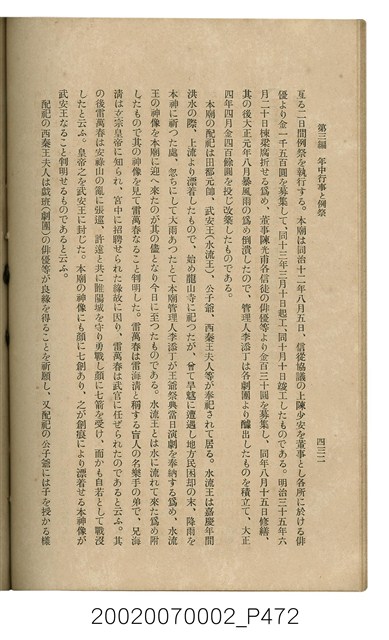 第三編　年中行事と例祭
四三二
亙る二日間例祭を執行する。本廟は同治十二年八月五日、信徒協議の上陳少安を董事とし各所に於ける俳
優より金一千五百圓を募集して、同十三年三月十日起工、同十月十日竣工したものである。明治三十五年六
月二十日棟梁腐折せる爲め、董事陳光甫各信徒の俳優等より金百三十圓を募集し、同年八月十五日修繕、
其の後大正元年八月暴風雨の爲め倒潰したので、管理人李添丁は各劇團より醵出したものを積立て、大正
四年四月金四百餘圓を投じ改築したものである。
本廟の配祀は田都元帥、武安王（水流王）、公子爺、西秦王夫人等が奉祀されて居る。水流王は嘉慶年間
洪水の際、上流より漂着したもので、始め龍山寺に祀つたが、曾て旱魃に遭遇し地方民困却の末、降雨を
本神に祈つた處、忽らにして大雨あつたとて本廟管理人李添丁が王爺祭典當日演劇を奉納する爲め、水流
王の神像を本廟に迎へ來たのが其の儘となり今日に至つたものである。水流王とは水に流れて來た爲め附
したもので其の神像を見て雷萬春なること判明した。雷萬春は雷海清と稱する盲人の名樂手の弟で、兄海
清は玄宗皇帝に知られ、宮中に招聘せられた緣故に因り、雷萬春は武官に任ぜられたのであると云ふ。其
の後雷萬春は安祿山の亂に張巡、許遠と共に睢陽城を守り勇戰し顏に七箭を受け、而かも自若として戰沒
したと云ふ。皇帝之を武安王に封じた。本廟の神像にも顏に七創あり、之が創痕により漂着せる本神像が
武安王なること判明せるものであると云ふ。
配祀の西秦王夫人は戲班（劇團）の俳優等が良緣を得ることを祈願し、又配祀の公子爺には子を授かる樣
20020070002_P472